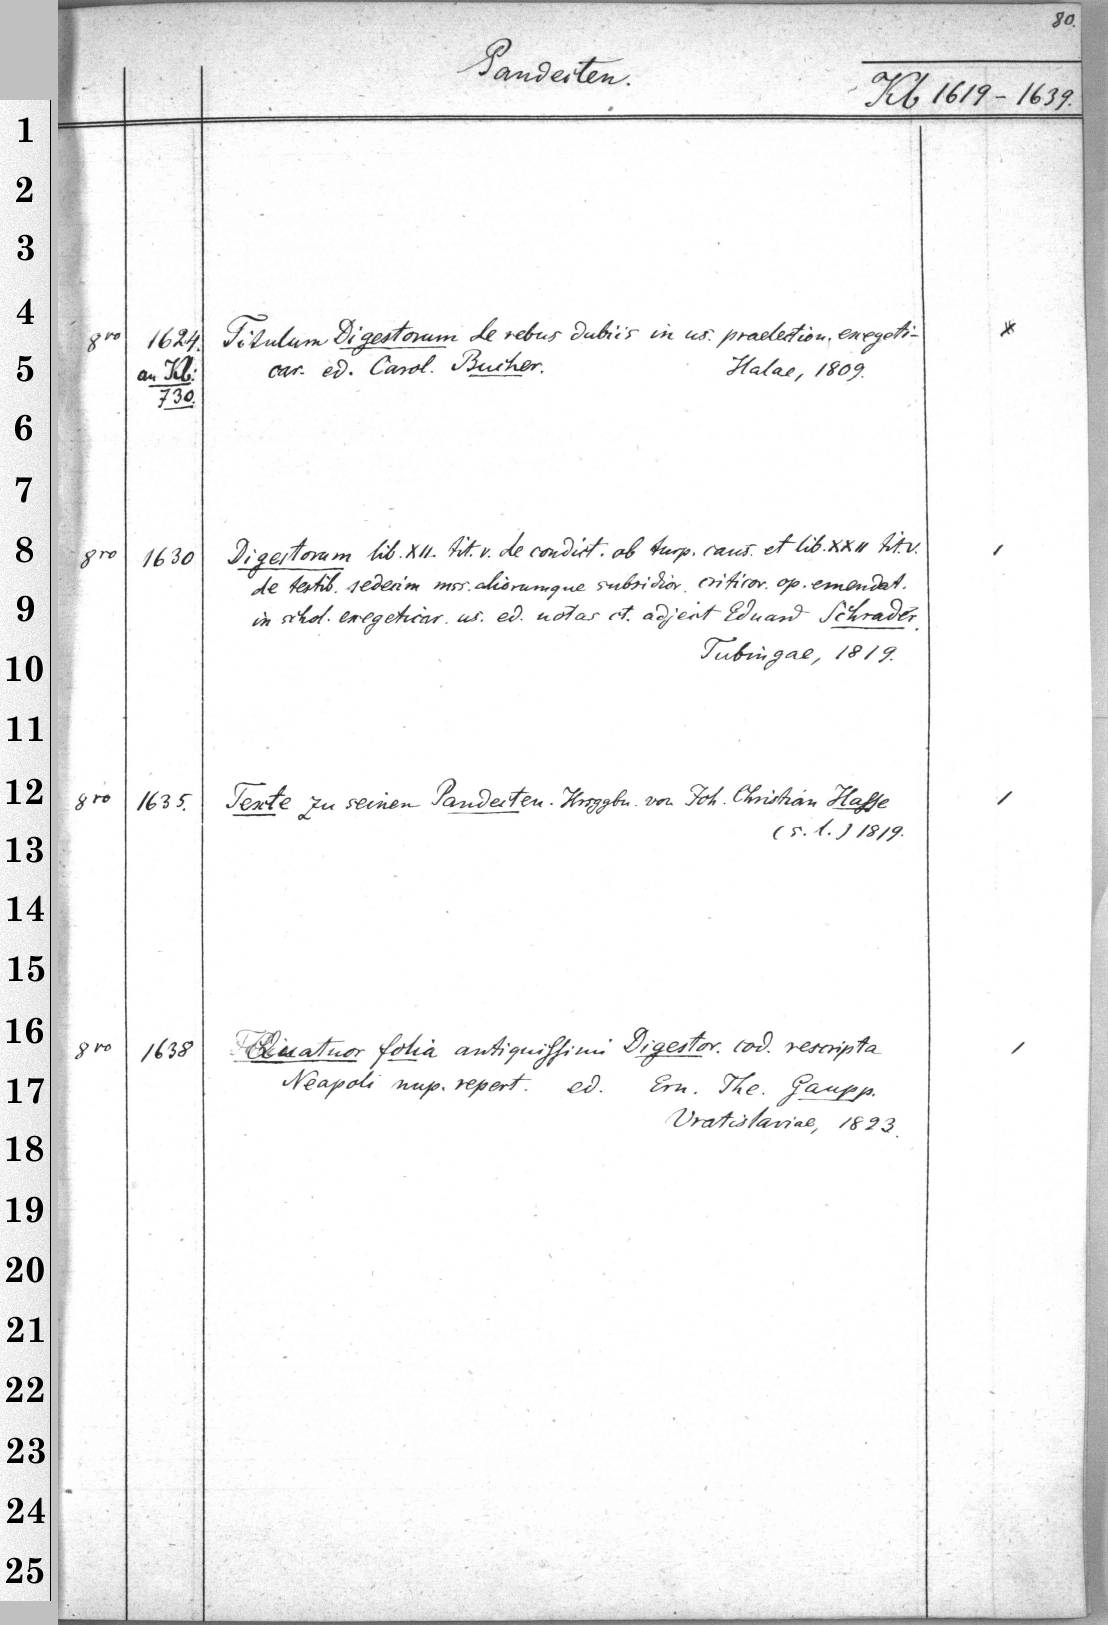 80.
Pandecten.
Kb 1619 - 1639.
1
2
3
4
8ro 1624. Titulum Digestorum de rebus dubiis in us. praelection. exegeti-
5
an Kb: car. ed. Carol. Bucher. Halae, 1809.
730.
6
7
8
8ro 1630 Digestorum lib. XII. tit. v. de condict. ob turp. caus. et lib. XXII tit. v.
de testib. sedecim mss. aliorumque subsidior. criticor. op. emendat.
9
in schol. exegeticar. us. ed. notas ct. adjecit Eduard Schrader.
10
Tubingae, 1819.
11
12
8ro 1635. Texte zu seinen Pandecten. Hrsggbn. von Joh. Christian Hasse
13
(s. l.) 1819.
14
15
16
8ro 1638 Quatuor folia antiquissimi Digestor. cod. rescripta
17
Neapoli nup. repert. ed. Ern. The. Gaupp.
Vratislaviae, 1823.
18
19
20
21
22
23
24
25